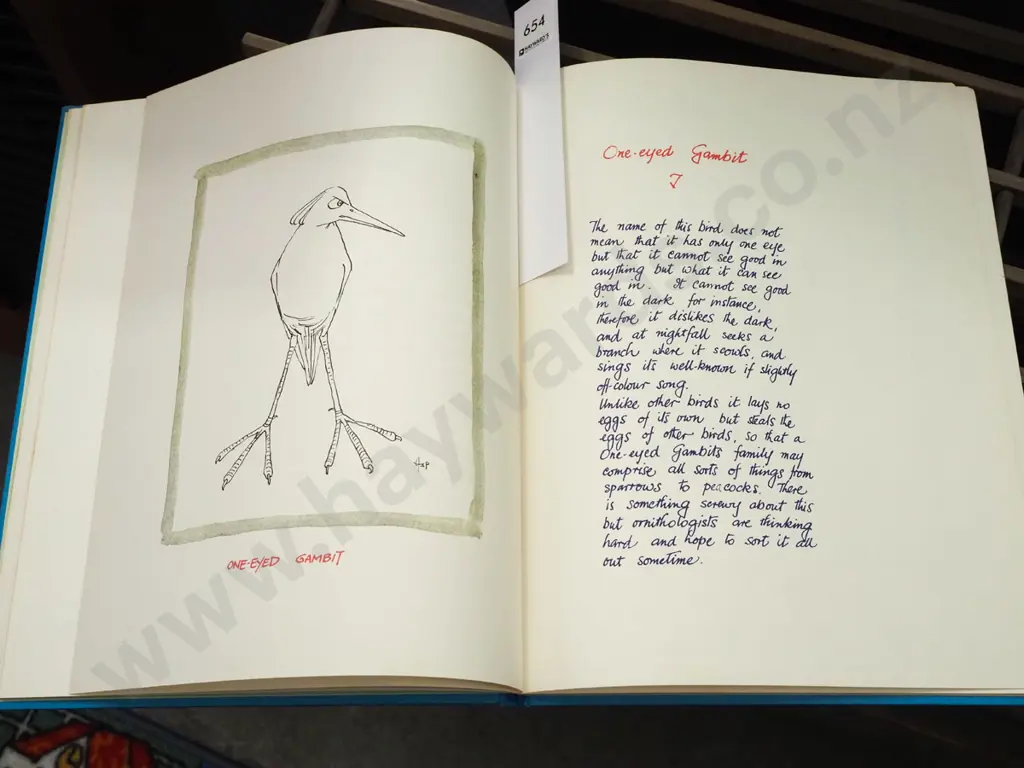 654
HAYWARD'S
ONE-EYED GAMBIT
One-eyed Gambit
The name of this bird does not
mean that it has only one eye
but that it cannot see good in
anything but what it can see
good in. It cannot see good
in the dark for instance,
therefore it dislikes the dark,
and at nightfall seeks a
branch where it scowls, and
sings its well-known if slightly
off-colour song.
Unlike other birds it lays no
eggs of its own, but steals the
eggs of other birds, so that a
One-eyed Gambits family may
comprise all sorts of things from
sparrows to peacocks. There
is something screwy about this
but ornithologists are thinking
hard and hope to sort it all
out sometime.
www.haywards.co.nz